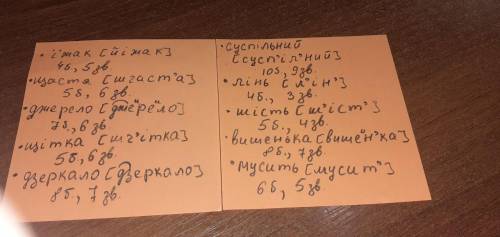 • їжак [йіжак]
4б, 5зв.
• щастя [шчаст'а]
5б, 6 зв.
• джерело [джеиреило]
7б, 6зв.
• щітка [шч'ітка]
5б, 6зв.
• дзеркало [дзеркало]
8б, 7зв.
• суспільний
[сусп'іл'ний]
10б, 9зв.
• лінь [л'ін']
4б., 3зв.
• шість [ш'іст']
5б, 4зв.
• вишенька [вишеин'ка]
8б, 7зв.
• мусить [мусит']
6б, 5зв.